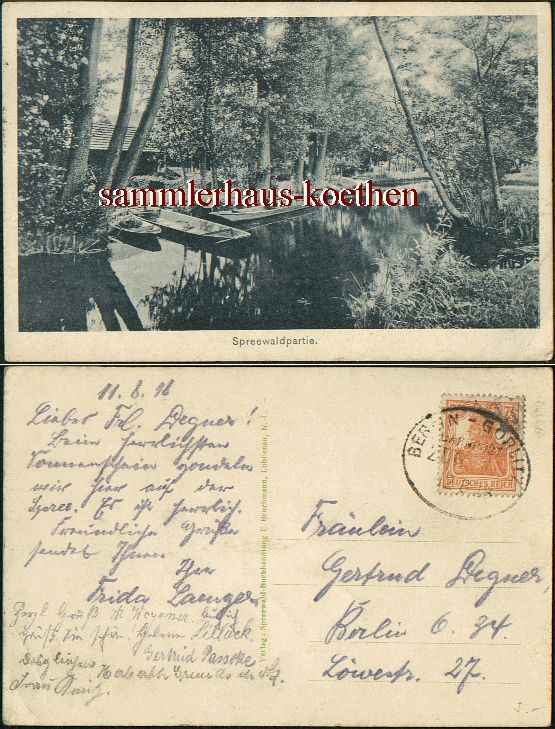 sammlerhaus-koethen
Spreewaldpartie.
11.8.16
Liebes Frl. Degner!
Beim herrlichsten
Sonnenschein gondeln
wir hier auf der
Spree. Es ist herrlich.
Freundliche Grüße
sendet Ihnen
Ihre
Frida Laenger
Herzl. Gruß
Gertrud
Frau
Verlag: Spreewald-Buchhandlung E. Bruchmann, Lübbenau, N.-L.
BERLIN - GÖRLITZ
DEUTSCHES REICH
Fräulein
Gertrud Degner,
Berlin O. 34.
Löwestr. 27.